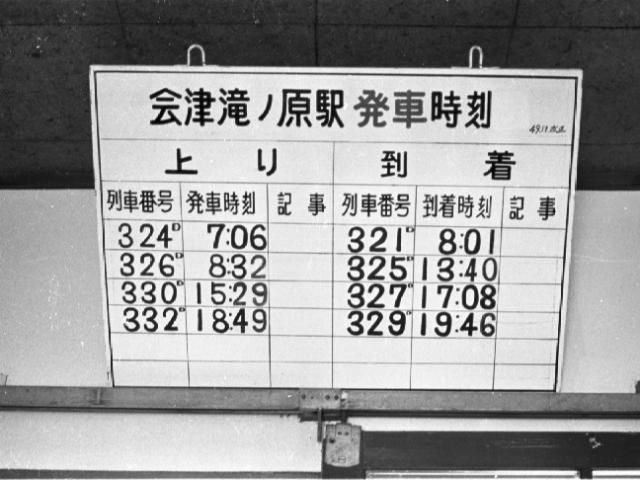 会津滝ノ原駅 発車時刻
49.11 改正
上り 到着
列車番号 発車時刻 記事 列車番号 到着時刻 記事
324D 7:06 321D 8:01
326D 8:32 325D 13:40
330D 15:29 327D 17:08
332D 18:49 329D 19:46